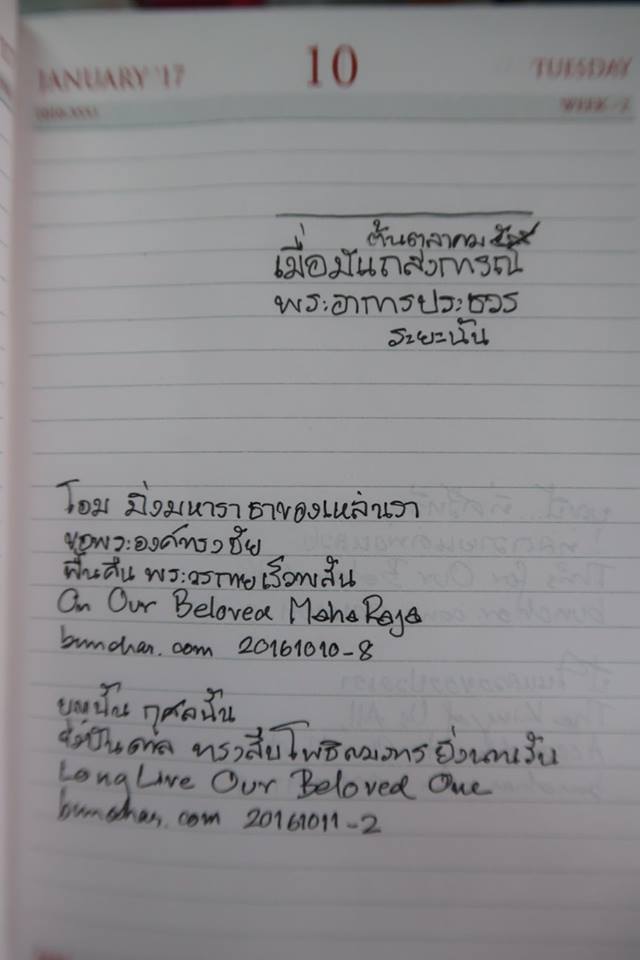 JANUARY '17 10 TUESDAY
WEEK - 2
ต้นตุลาคม
เมื่อมีแถลงการณ์
พระอาการประชวร
ระยะนั้น
โอม มิ่งมหาราชาของเหล่าเรา
ขอพระองค์ทรงชัย
ฟื้นคืน พระวรกายเร็วพลัน
On Our Beloved Maha Raja
bunchar.com 20161010-8
บุญนั้น กุศลนั้น
ทรงสืบโพธิสมภาร ยิ่งนานวัน
Long Live Our Beloved One
bunchar.com 20161011-2